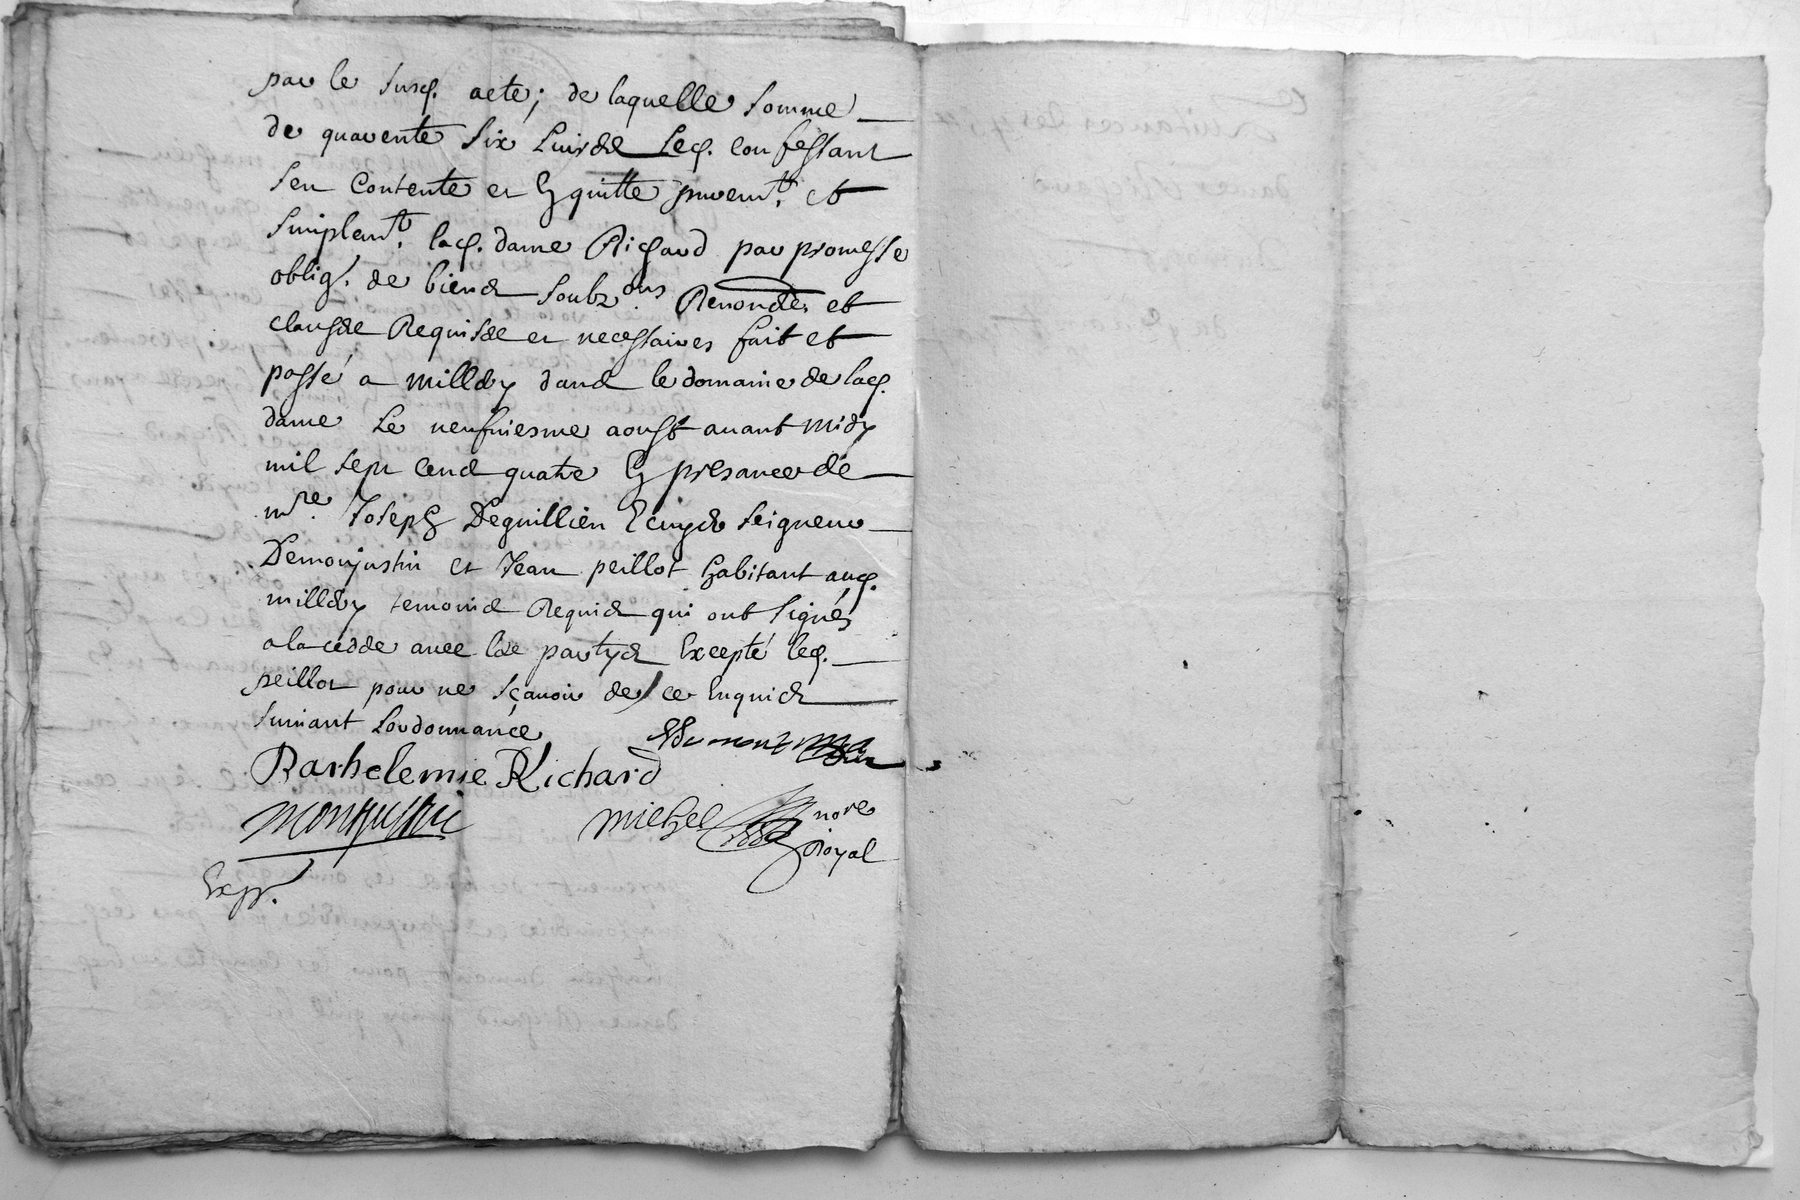 par le susd. acte; de laquelle somme
de quarente six livres led. confessant
sen contente et en quitte purem.t et
simplem.t lad. dame Richard par promesse
oblig. de biens soubz ons Renonces et
clauses Requises et necessaires fait et
passé a millery dans le domaine de lad.
dame Le neufviesme aoust avant midy
mil sept cens quatre en presance de
m.re Joseph Deguillien Ecuyer seigneur
Demonjustin et Jean peillot habitant aud.
millery temoins Requis qui ont signés
a la cedde avec les partyes Excepté led.
peillot pour ne sçavoir de ce Enquis
suivant Lordonnance
Barthelemie Richard
monjustin
michel no.re
Royal
Exp.